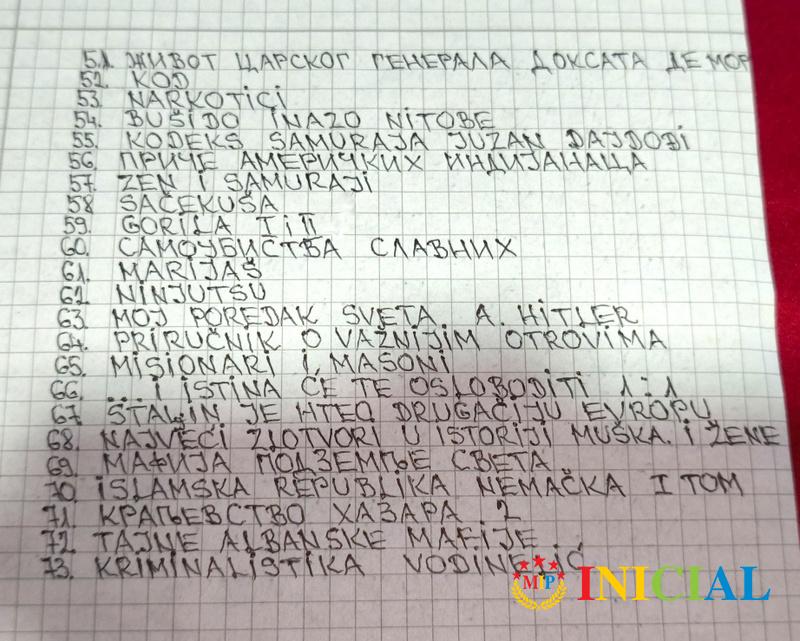 51. ЖИВОТ ЦАРСКОГ ГЕНЕРАЛА ДОКСАТА ДЕ МОР
52. KOD
53. NARKOTICI
54. BUŠIDO INAZO NITOBE
55. KODEKS SAMURAJA JUZAN DAJDOĐI
56. ПРИЧЕ АМЕРИЧКИХ ИНДИЈАНАЦА
57. ZEN I SAMURAJI
58 SAČEKUŠA
59. GORILA I i II
60. САМОУБИСТВА СЛАВНИХ
61. MARIJAŠ
62. NINJUTSU
63. MOJ POREDAK SVETA A. HITLER
64. PRIRUČNIK O VAŽNIJIM OTROVIMA
65. MISIONARI I MASONI
66. ...I ISTINA ĆE TE OSLOBODITI 1:1
67. STALIN JE HTEO DRUGAČIJU EVROPU
68. NAJVEĆI ZLOTVORI U ISTORIJI MUŠKA. I ŽENE
69. МАФИЈА ПОДЗЕМЉЕ СВЕТА
70. ISLAMSKA REPUBLIKA NEMAČKA I TOM
71. КРАЉЕВСТВО ХАЗАРА 2
72. TAJNE ALBANSKE MAFIJE
73. KRIMINALISTIKA VODINELIĆ
MiP INICIAL